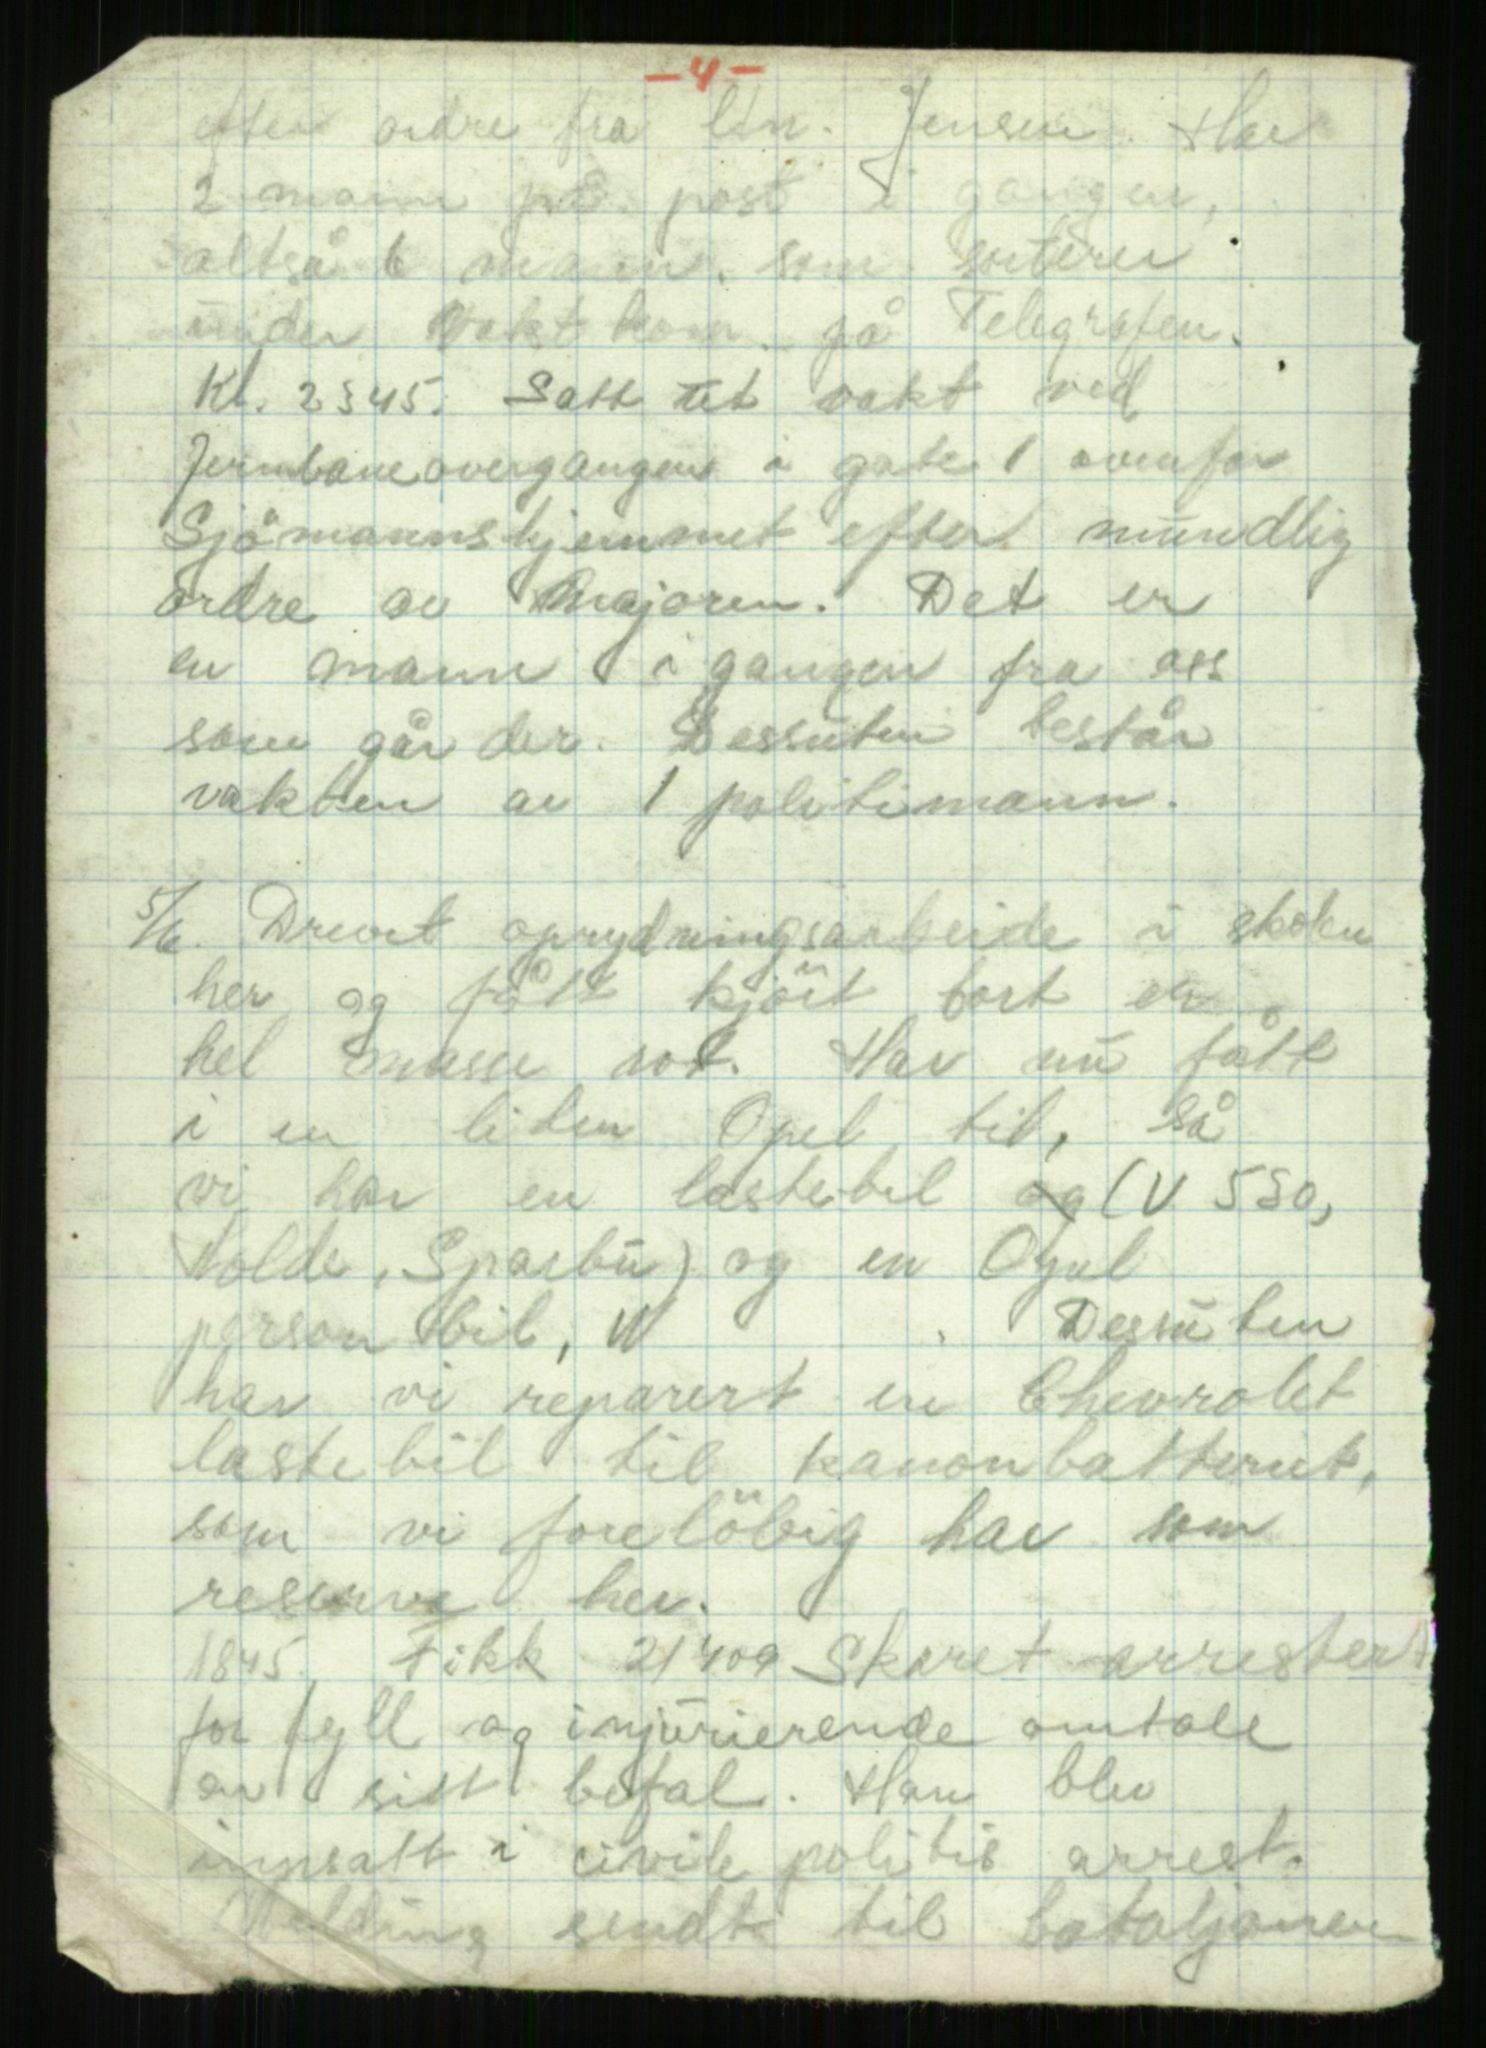 -4-
efter ordre fra ltn. Jensen. Har
2 mann på post i gangen,
altså 6 mann som sorterer
under Vaktkom. på Telegrafen.
Kl. 2345. Satt ut vakt ved
Jernbaneovergangen i gate 1 ovenfor
Sjömannshjemmet efter mundlig
ordre av Majoren. Det er
en mann i gangen fra oss
som går der. Dessuten består
vakten av 1 politimann.
5/6. Drevet oprydningsarbeide i skolen
her og fått kjört bort en
hel masse rot. Har nu fått
i en liten Opel til, så
vi har en lastebil og (V 550,
Holde, Sparbu) og en Opel
personbil, W . Dessuten
har vi reparert en Chevrolet
lastebil til kanonbatteriet,
som vi forelöbig har som
reserve her.
1845. Fikk 21409 Skaret arrestert
for fyll og injurierende omtale
av sitt befal. Han blev
innsatt i civile politis arrest.
Melding sendt til bataljonen